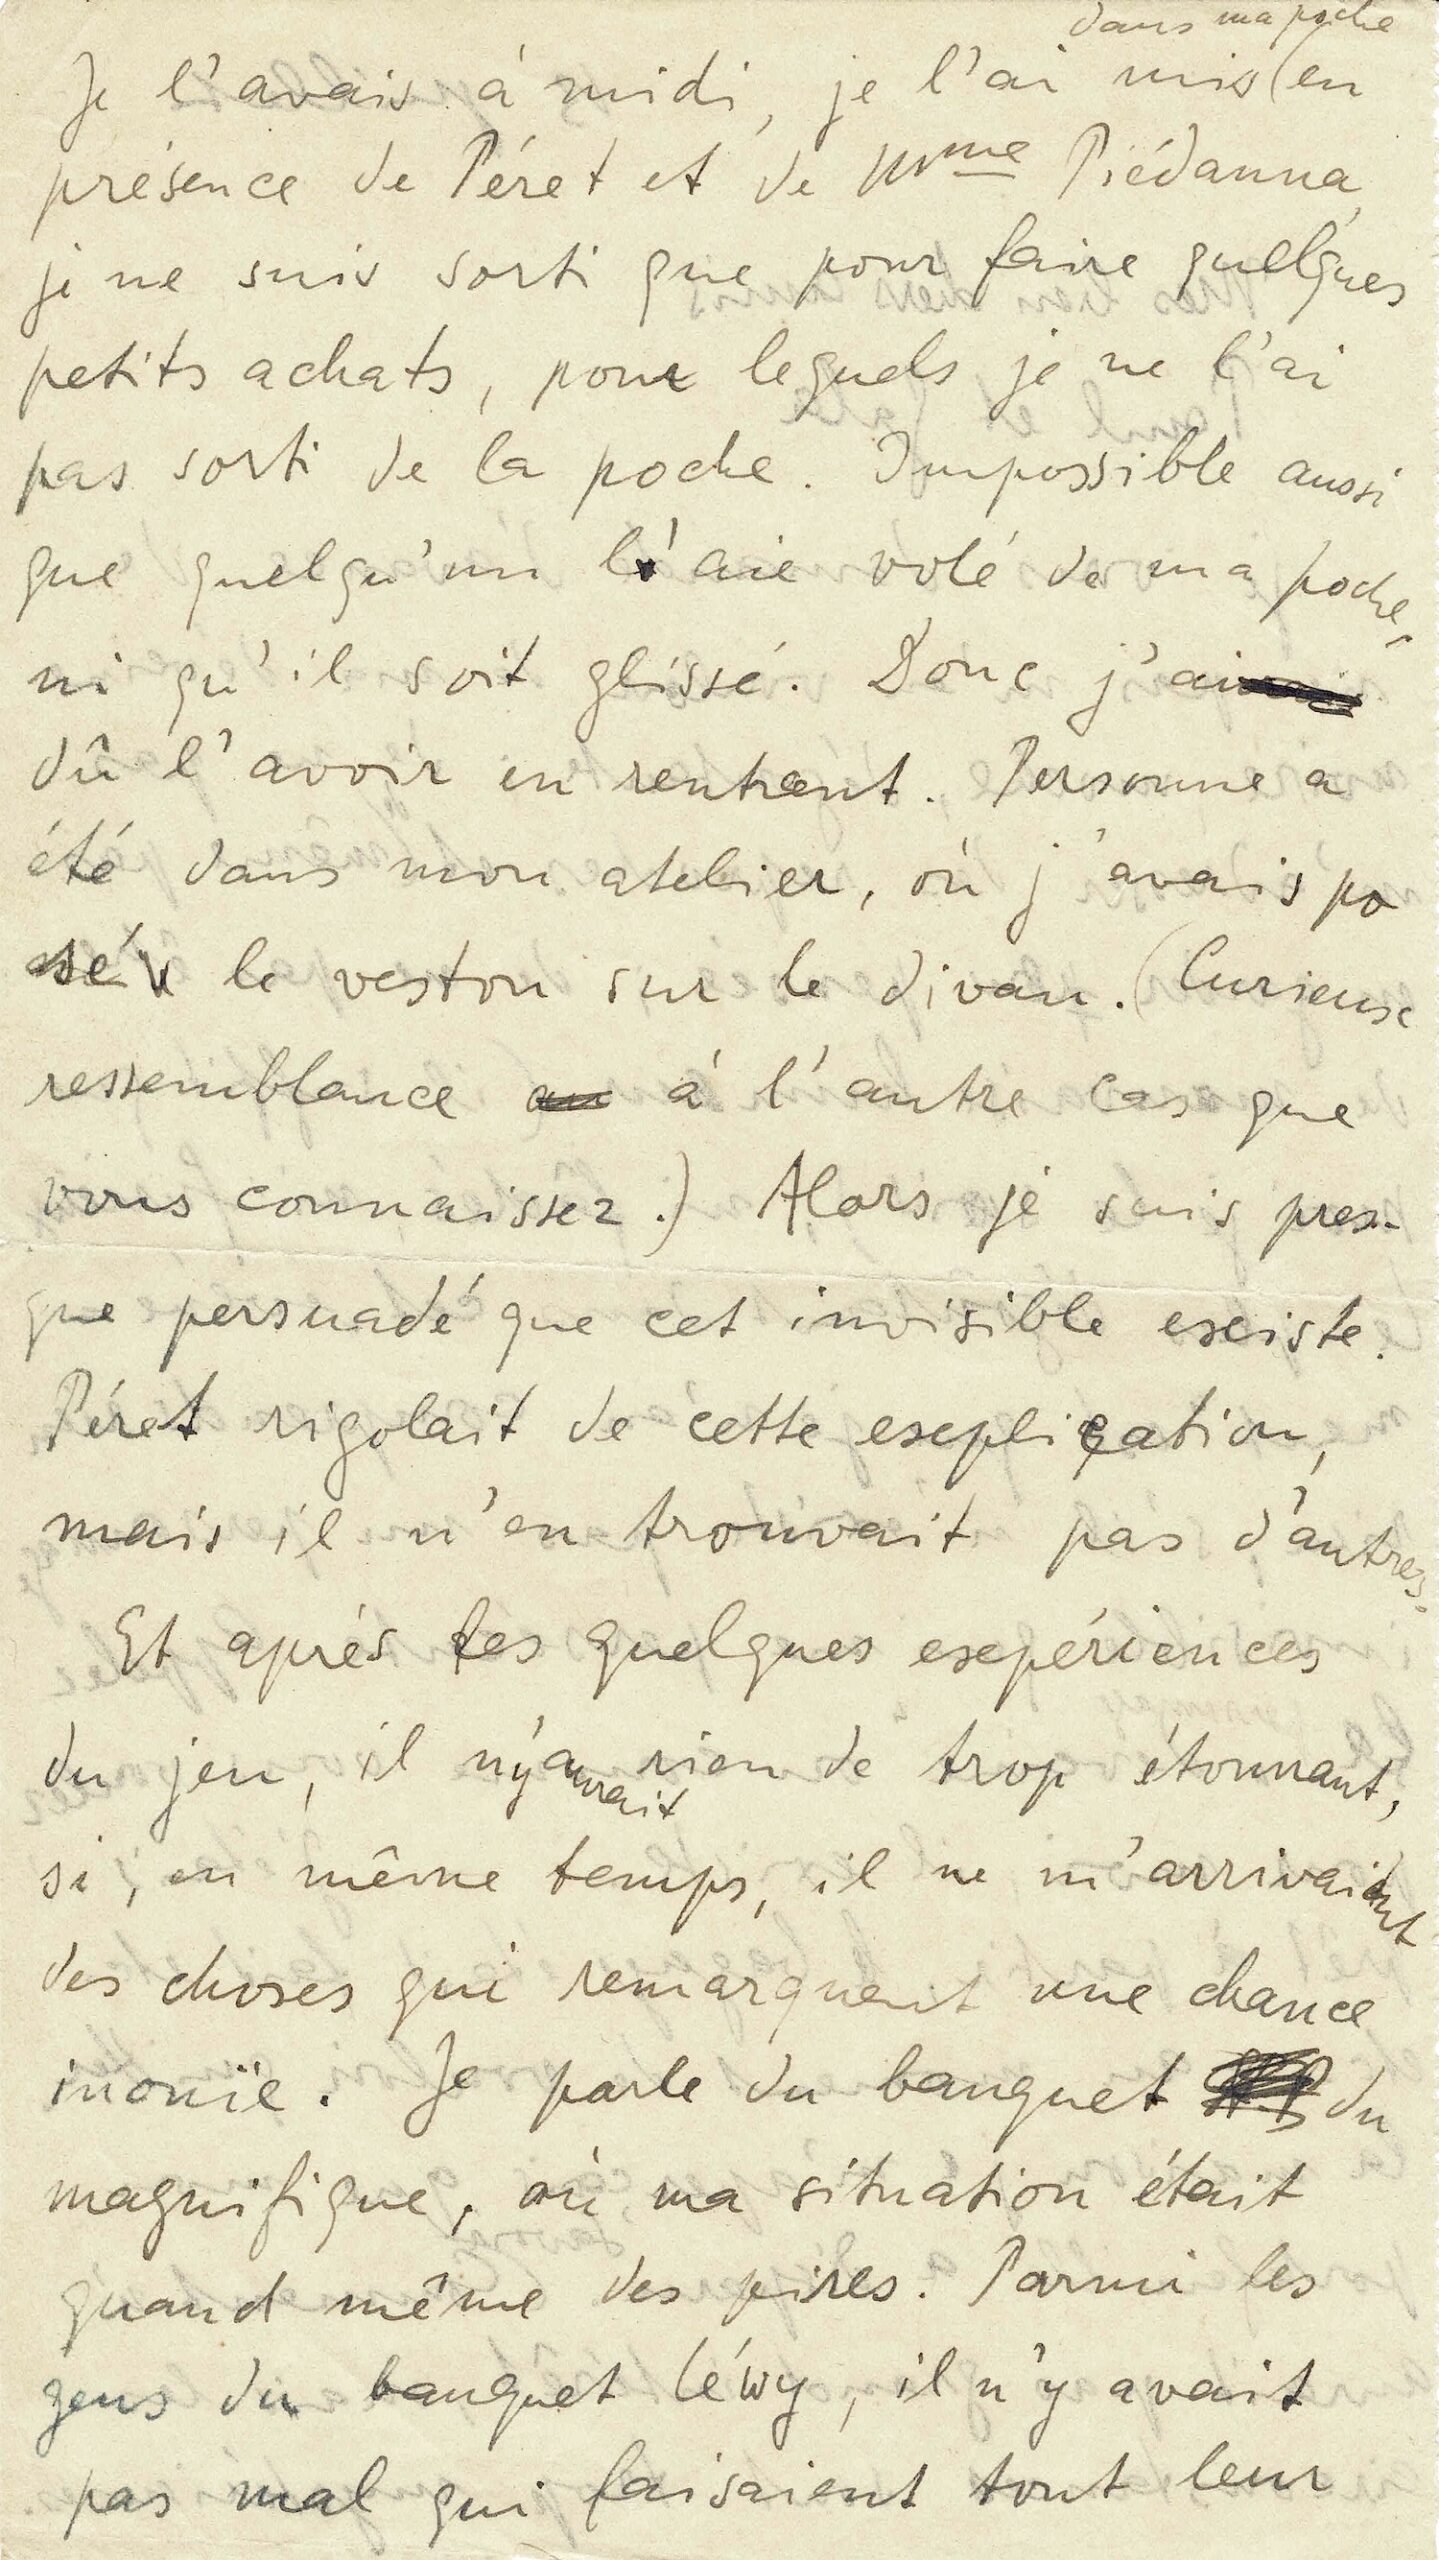 dans ma poche
Je l'avais à midi, je l'ai mis (en
présence de Péret et de Mme Piédanna,
je ne suis sorti que pour faire quelques
petits achats, pour lequels je ne l'ai
pas sorti de la poche. Impossible aussi
que quelqu'un l'aie volé de ma poche,
ni qu'il soit glissé. Donc j'ai
dû l'avoir en rentrant. Personne a
été dans mon atelier, où j'avais po
sé le veston sur le divan. (Curieuse
ressemblance à l'autre cas que
vous connaissez.) Alors je suis pres-
que persuadé que cet invisible existe.
Péret rigolait de cette explication,
mais il n'en trouvait pas d'autres.
Et après les quelques expériences
du jeu, il n'y aurait rien de trop étonnant,
si, en même temps, il ne m'arrivaient
des choses qui remarquent une chance
inouïe. Je parle du banquet du
magnifique, où ma situation était
quand même des pires. Parmi les
gens du banquet Léwy, il n'y avait
pas mal qui faisaient tout leur